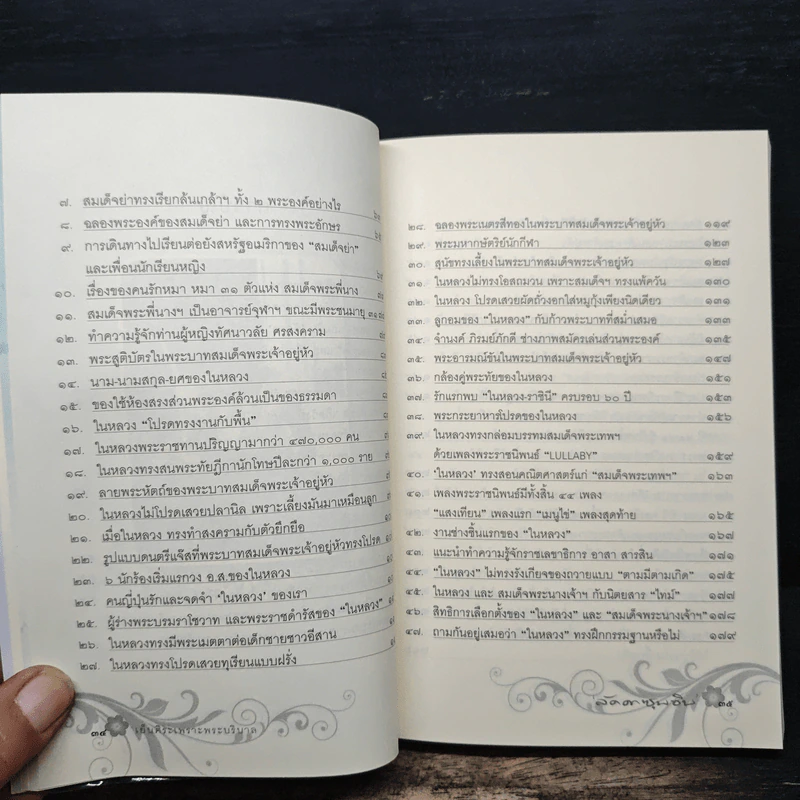 ๗. สมเด็จย่าทรงเรียกล้นเกล้าฯ ทั้ง ๒ พระองค์อย่างไร
๘. ฉลองพระองค์ของสมเด็จย่า และการทรงพระอักษร
๙. การเดินทางไปเรียนต่อยังสหรัฐอเมริกาของ "สมเด็จย่า"
และเพื่อนนักเรียนหญิง
๑๐. เรื่องของคนรักหมา หมา ๓๑ ตัวแห่ง สมเด็จพระพี่นาง
๑๑. สมเด็จพระพี่นางฯ เป็นอาจารย์จุฬาฯ ขณะมีพระชนมายุ
๑๒. ทำความรู้จักท่านผู้หญิงทัศนาวลัย ศรสงคราม
๑๓. พระสูติบัตรในพระบาทสมเด็จพระเจ้าอยู่หัว
๑๔. นาม-นามสกุล-ยศของในหลวง
๑๕. ของใช้ห้องสรงส่วนพระองค์ล้วนเป็นของธรรมดา
๑๖. ในหลวง "โปรดทรงงานกับพื้น"
๑๗. ในหลวงพระราชทานปริญญามากว่า ๔๗๐,๐๐๐ คน
๑๘. ในหลวงทรงสนพระทัยฎีกานักโทษปีละกว่า ๑,๐๐๐ ราย
๑๙. ลายพระหัตถ์ของพระบาทสมเด็จพระเจ้าอยู่หัว
๒๐. ในหลวงไม่โปรดเสวยปลานิล เพราะเลี้ยงมันมาเหมือนลูก
๒๑. เมื่อในหลวง ทรงทำสงครามกับตัวยึกยือ
๒๒. รูปแบบดนตรีแจ๊สที่พระบาทสมเด็จพระเจ้าอยู่หัวทรงโปรด
๒๓. ๖ นักร้องเริ่มแรกวง อ.ส.ของในหลวง
๒๔. คนญี่ปุ่นรักและจดจำ 'ในหลวง' ของเรา
๒๕. ผู้ร่างพระบรมราโชวาท และพระราชดำรัสของ "ในหลวง"
๒๖. ในหลวงทรงมีพระเมตตาต่อเด็กชายชาวอีสาน
๒๗. ในหลวงทรงโปรดเสวยทุเรียนแบบฝรั่ง
๓๔ เย็นศิระเพราะพระบริบาล
๒๘. ฉลองพระเนตรสีทองในพระบาทสมเด็จพระเจ้าอยู่หัว ๑๑๙
๒๙. พระมหากษัตริย์นักกีฬา ๑๒๓
๓๐. สุนัขทรงเลี้ยงในพระบาทสมเด็จพระเจ้าอยู่หัว ๑๒๗
๓๑. ในหลวงไม่ทรงโอสถมวน เพราะสมเด็จฯ ทรงแพ้ควัน ๑๓๐
๓๒. ในหลวง โปรดเสวยผัดถั่วงอกใส่หมูกุ้งเพียงนิดเดียว ๑๓๑
๓๓. ลูกอมของ "ในหลวง" กับก้าวพระบาทที่สม่ำเสมอ ๑๓๓
๓๔. จำนงค์ ภิรมย์ภักดี ช่างภาพสมัครเล่นส่วนพระองค์
๓๕. พระอารมณ์ขันในพระบาทสมเด็จพระเจ้าอยู่หัว ๑๔๗
๓๖. กล้องคู่พระทัยของในหลวง ๑๕๑
๓๗. รักแรกพบ "ในหลวง-ราชินี" ครบรอบ ๖๐ ปี ๑๕๓
๓๘. พระกระยาหารโปรดของในหลวง ๑๕๖
๓๙. ในหลวงทรงกล่อมบรรทมสมเด็จพระเทพฯ
ด้วยเพลงพระราชนิพนธ์ "LULLABY" ๑๕๙
๔๐. 'ในหลวง' ทรงสอนคณิตศาสตร์แก่ "สมเด็จพระเทพฯ" ๑๖๓
๔๑. เพลงพระราชนิพนธ์มีทั้งสิ้น ๔๔ เพลง
"แสงเทียน" เพลงแรก "เมนูไข่" เพลงสุดท้าย ๑๖๕
๔๒. งานช่างชิ้นแรกของ "ในหลวง" ๑๖๗
๔๓. แนะนำทำความรู้จักราชเลขาธิการ อาสา สารสิน ๑๗๑
๔๔. "ในหลวง" ไม่ทรงรังเกียจของถวายแบบ "ตามมีตามเกิด" ๑๗๕
๔๕. ในหลวง และ สมเด็จพระนางเจ้าฯ กับนิตยสาร "ไทม์" ๑๗๖
๔๖. สิทธิการเลือกตั้งของ "ในหลวง" และ "สมเด็จพระนางเจ้าฯ" ๑๗๘
๔๗. ถามกันอยู่เสมอว่า "ในหลวง" ทรงฝึกกรรมฐานหรือไม่ ๑๗๙
ลัดดาซุบซิบ ๓๕